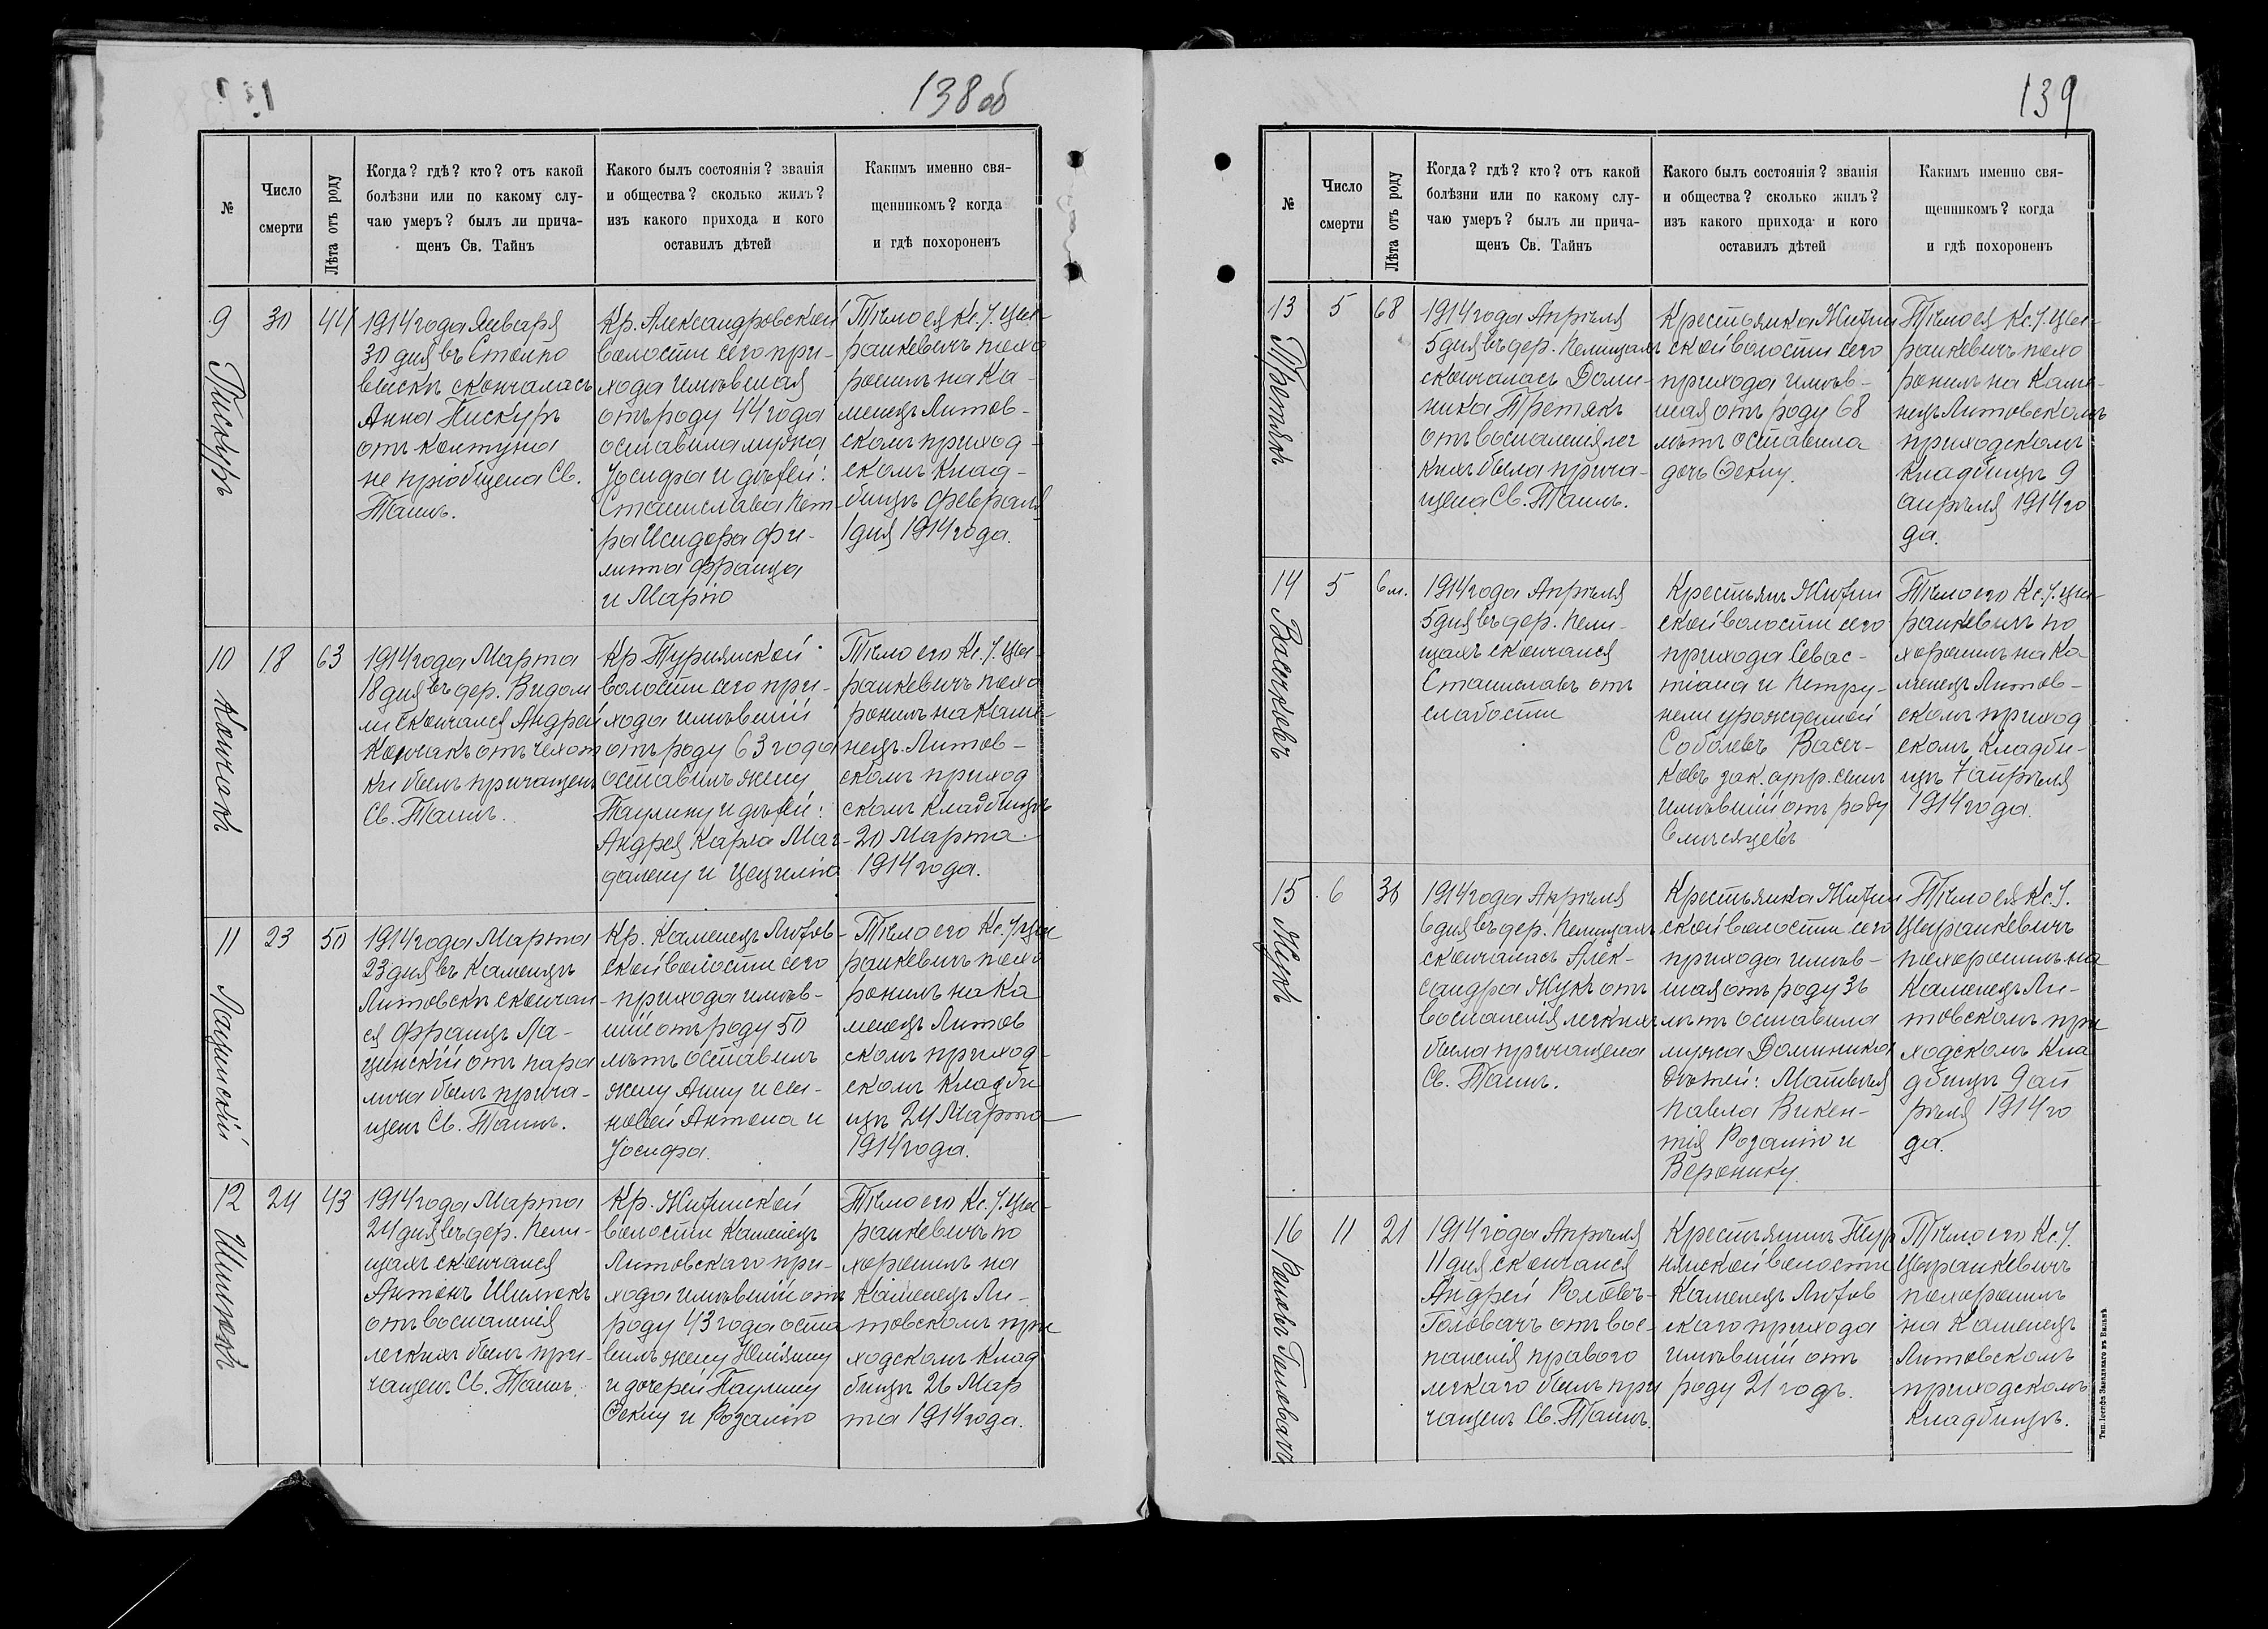 138 об
№
Число
смерти
Лѣта отъ роду
Когда? гдѣ? кто? отъ какой
болѣзни или по какому слу-
чаю умеръ? былъ ли прича-
щенъ Св. Тайнъ
Какого былъ состоянія? званія
и общества? сколько жилъ?
изъ какого прихода и кого
оставилъ дѣтей
Какимъ именно свя-
щенникомъ? когда
и гдѣ похороненъ
9
Пискуръ
30
44
1914 года Января
30 дня въ
скончалась
Анна Пискуръ
отъ колтуна
не пріобщена Св.
Таинъ.
Кр. Александровской
волости сего при-
хода имѣвшая
отъ роду 44 года
оставила мужа
Іосифа и дѣтей:
Станислава Пет-
ра Исидора
Франца
и Марію
Тѣло ея Кс. І. Цы-
ранкевичъ похо
ронилъ на Ка-
менецъ Литов-
скомъ приход-
скомъ клад-
бищѣ Февраля
1 дня 1914 года.
10
Кончакъ
18
63
1914 года Марта
18 дня въ дер. Видом
ли скончался Андрей
Кончакъ отъ чехот
ки былъ причащенъ
Св. Таинъ.
Кр. Турнянской
волости сего при-
хода имѣвшій
отъ роду 63 года
оставилъ жену
Паулину и дѣтей:
Андрея Карла Маг-
далену и Цецилію
Тѣло его Кс. І. Цы-
ранкевичъ похо
ронилъ на Каме-
нецъ-Литов-
скомъ приход
скомъ кладбищѣ
20 Марта
1914 года.
11
Лащинскій
23
50
1914 года Марта
23 дня въ Каменцѣ
Литовскѣ скончал-
ся Францъ Ла-
щинскій отъ пара
лича былъ прича-
щенъ Св. Таинъ.
Кр. Каменецъ Литов-
ской волости сего
прихода имѣв-
шій отъ роду 50
лѣтъ оставилъ
жену Анну и сы-
новей Антона и
Іосифа.
Тѣло его Кс. І. Цы
ранкевичъ похо
ронилъ на Ка
менецъ Литов
скомъ приход-
скомъ кладби
щѣ 24 Марта
1914 года.
12
Шилюкъ
24
43
1914 года Марта
24 дня въ дер. Пели-
щахъ скончался
Антонъ Шилюкъ
отъ воспаленія
легкихъ былъ при-
чащенъ Св. Таинъ.
Кр. Житинской
волости Каменецъ
Литовскаго при-
хода имѣвшій отъ
роду 43 года оста
вилъ жену Юліяну
и дочерей Паулину
Феклу и Розалію
Тѣло его Кс. І. Цы-
ранкевичъ по
хоронилъ на
Каменецъ Ли-
товскомъ при
ходскомъ клад
бищѣ 26 Мар
та 1914 года.
139
№
Число
смерти
Лѣта отъ роду
Когда? гдѣ? кто? отъ какой
болѣзни или по какому слу-
чаю умеръ? былъ ли прича-
щенъ Св. Тайнъ
Какого былъ состоянія? званія
и общества? сколько жилъ?
изъ какого прихода и кого
оставилъ дѣтей
Какимъ именно свя-
щенникомъ? когда
и гдѣ похороненъ
13
Претякъ
5
68
1914 года Апрѣля
5 дня въ дер. Пелищахъ
скончалась Доми-
ника Претякъ
отъ воспаленія лег
кихъ была прича-
щена Св. Таинъ.
Крестьянка Житин
ской волости сего
прихода имѣв-
шая отъ роду 68
лѣтъ оставила
дочь Феклу.
Тѣло ея Кс. І. Цы-
ранкевичъ похо
ронилъ на Каме-
нецъ Литовскомъ
приходскомъ
кладбищѣ 9
апрѣля 1914 го
да.
14
Васьковъ
5
6 м.
1914 года Апрѣля
5 дня въ дер. Пели-
щахъ скончался
Станиславъ отъ
слабости
Крестьянъ Житин
ской волости сего
прихода Севас-
тіана и Петру-
нели урожденной
Соболевъ Вась-
ковъ зак. супр. сынъ
имѣвшій отъ роду
6 мѣсяцевъ
Тѣло его Кс. І. Цы-
ранкевичъ по
хоронилъ на Ка
менецъ Литов-
скомъ приход
скомъ кладби-
щѣ 7 апрѣля
1914 года.
15
Жукъ
6
36
1914 года Апрѣля
6 дня въ дер. Пелищахъ
скончалась Алек-
сандра Жукъ отъ
воспаленія легкихъ
была причащена
Св. Таинъ.
Крестьянка Житин
ской волости сего
прихода имѣв-
шая отъ роду 36
лѣтъ оставила
мужа Доминика
дѣтей: Матвѣя
Павла Викен-
тія Розалію и
Веронику.
Тѣло ея Кс. І.
Цыранкевичъ
похоронилъ на
Каменецъ Ли-
товскомъ при
ходскомъ кла
дбищѣ 9 ап
рѣля 1914 го
да.
16
Раловъ Головачъ
11
21
1914 года Апрѣля
11 дня скончался
Андрей Роловъ-
Головачъ отъ вос-
паленія праваго
легкаго былъ при
чащенъ Св. Таинъ.
Крестьянинъ Тур
нянской волости
Каменецъ Литов
скаго прихода
имѣвшій отъ
роду 21 годъ.
Тѣло его Кс. І.
Цыранкевичъ
похоронилъ
на Каменецъ
Литовскомъ
приходскомъ
кладбищѣ.
Тип. Іосифа Завадзкаго въ Вильнѣ